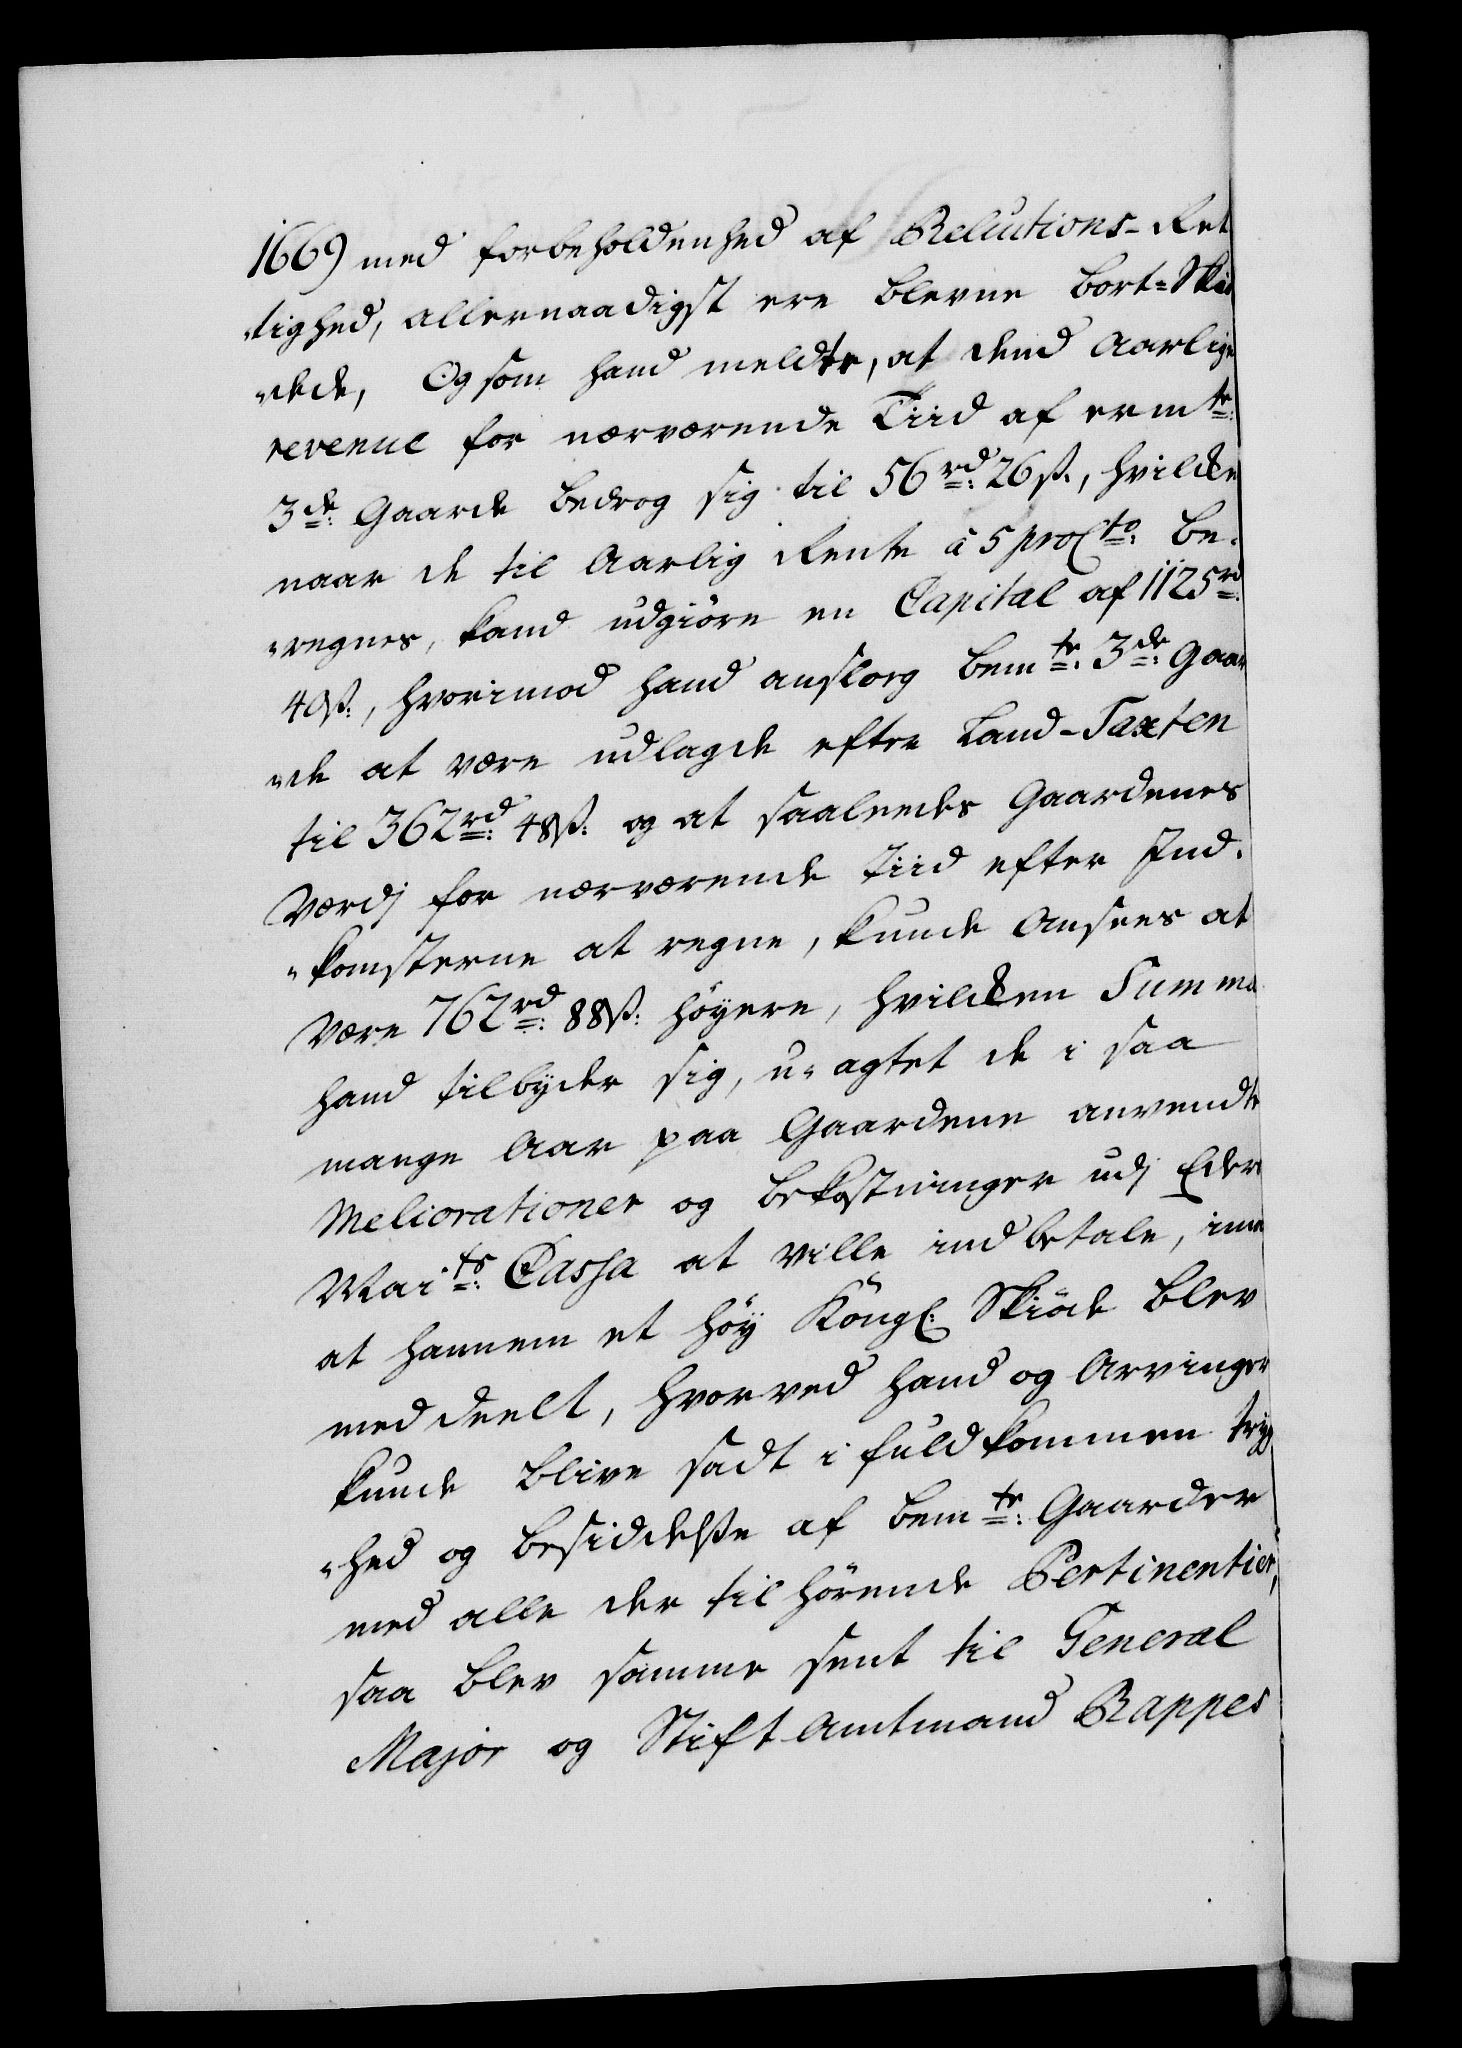 1669 med forbeholdenhed af Relutions-Ret
„tighed, allernaadigst ere blevne bort-Skiö
„dede, Og som hand meldte, at dend Aarlige
revenue for nærværende Tiid af erm<sup>te</sup>:
3<sup>de</sup>: Gaarde bedrog sig til 56 <sup>rd</sup>: 26 ß., hvilcke
naar de til Aarlig Rente á 5 proC<sup>to</sup>: be„
„regnes, kand udgiöre en Capital af 1125 <sup>rd</sup>:
40 ß:, hvorimod hand anslog bem<sup>te</sup>: 3<sup>de</sup>: Gaar
„de at være udlagde efter Land-Taxten
til 362 <sup>rd</sup>: 48 ß: og at saaledes Gaardenes
Værdj for nærværende Tiid efter Ind„
„komsterne at regne, kunde ansees at
være 762 <sup>rd</sup>: 88 ß: höyere, hvilcken Summa
hand tilbyder sig, u-agtet de i saa
mange Aar paa Gaardene anvendte
Meliorationer og bekostninger udj Eders
Mai<sup>ts</sup>: Cassa at ville indbetale, imod
at hannem et höy Köngl: Skiöde blev
meddeelt, hvorved hand og Arvinger
kunde blive sadt i fuldkommen tryg
„hed og besiddelße af bem<sup>te</sup>: Gaarder
med alle der tilhörende Pertinentier,
saa blev samme sent til General
Major og Stift Amtmand Rappes